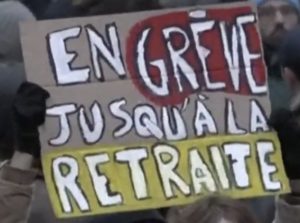 EN GRÈVE
JUSQU'À LA
RETRAITE